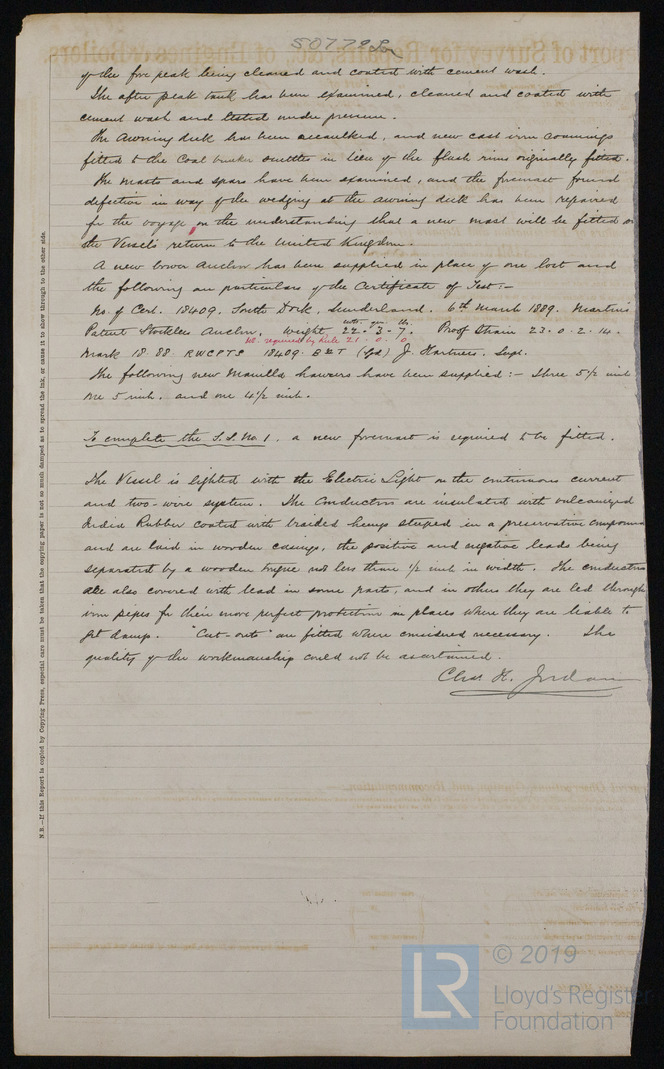 50772 Lon
of the fore peak being cleaned and coated with cement wash.
The after peak tank has been examined, cleaned and coated with
cement wash and tested under pressure.
The Awning deck has been recaulked, and new cast iron coamings
fitted to the Coal bunker scuttles in lieu of the flush rims originally fitted.
The masts and spars have been examined, and the foremast found
defective in way of the wedging at the awning deck has been repaired
for the voyage on the understanding that a new mast will be fitted on
the Vessel's return to the United Kingdom.
A new bower Anchor has been supplied in place of one lost and
the following are particulars of the Certificate of Test:-
No. of Cert. 18409. South Dock, Sunderland. 6th March 1889. Martin's
cwts. qrs. lbs.
Patent Stockless Anchor. Weight 22 - 3 - 7. Proof Strain 23. 0. 2. 14.
Wt. required by Rule 21. 0. 0.
Mark 18.88 RWCPTS 18409. (Sd) J. Hartness. Supt.
The following new Manilla hawsers have been supplied:- Three 5 1/2 inch
one 5 inch. and one 4 1/2 inch.
To complete the S.S. No 1. a new foremast is required to be fitted.
The Vessel is lighted with the Electric Light on the continuous current
and two-wire system. The Conductors are insulated with vulcanized
India Rubber coated with braided hemp steeped in a preservative compound
and are laid in wooden casings, the positive and negative leads being
separated by a wooden tongue not less than 1/2 inch in width. The conductors
are also covered with lead in some parts, and in others they are led through
iron pipes for their more perfect protection in places where they are liable to
get damp. "Cut-outs" are fitted where considered necessary. The
quality of the workmanship could not be ascertained.
Chas. H. Jordan
N.B.—If this Report is copied by Copying Press, especial care must be taken that the copying paper is not so much damped as to spread the ink, or cause it to show through to the other side.
© 2019
LR
Lloyd's Register
Foundation